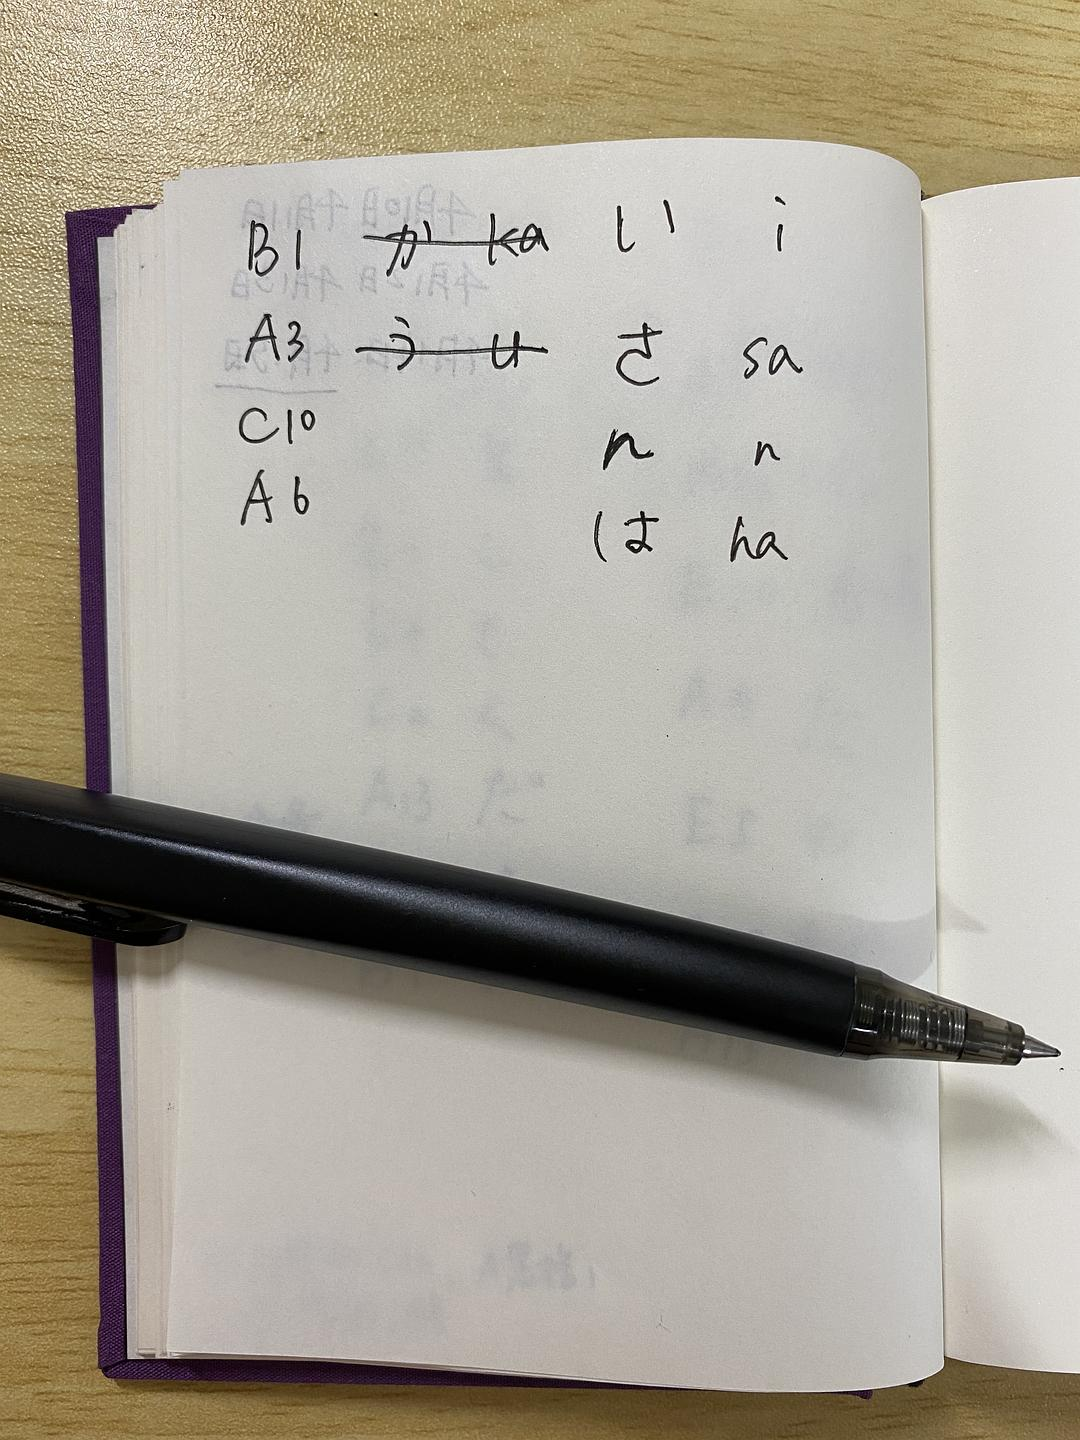 B1 か ka い i
A3 う u さ sa
C10 n n
A6 は ha